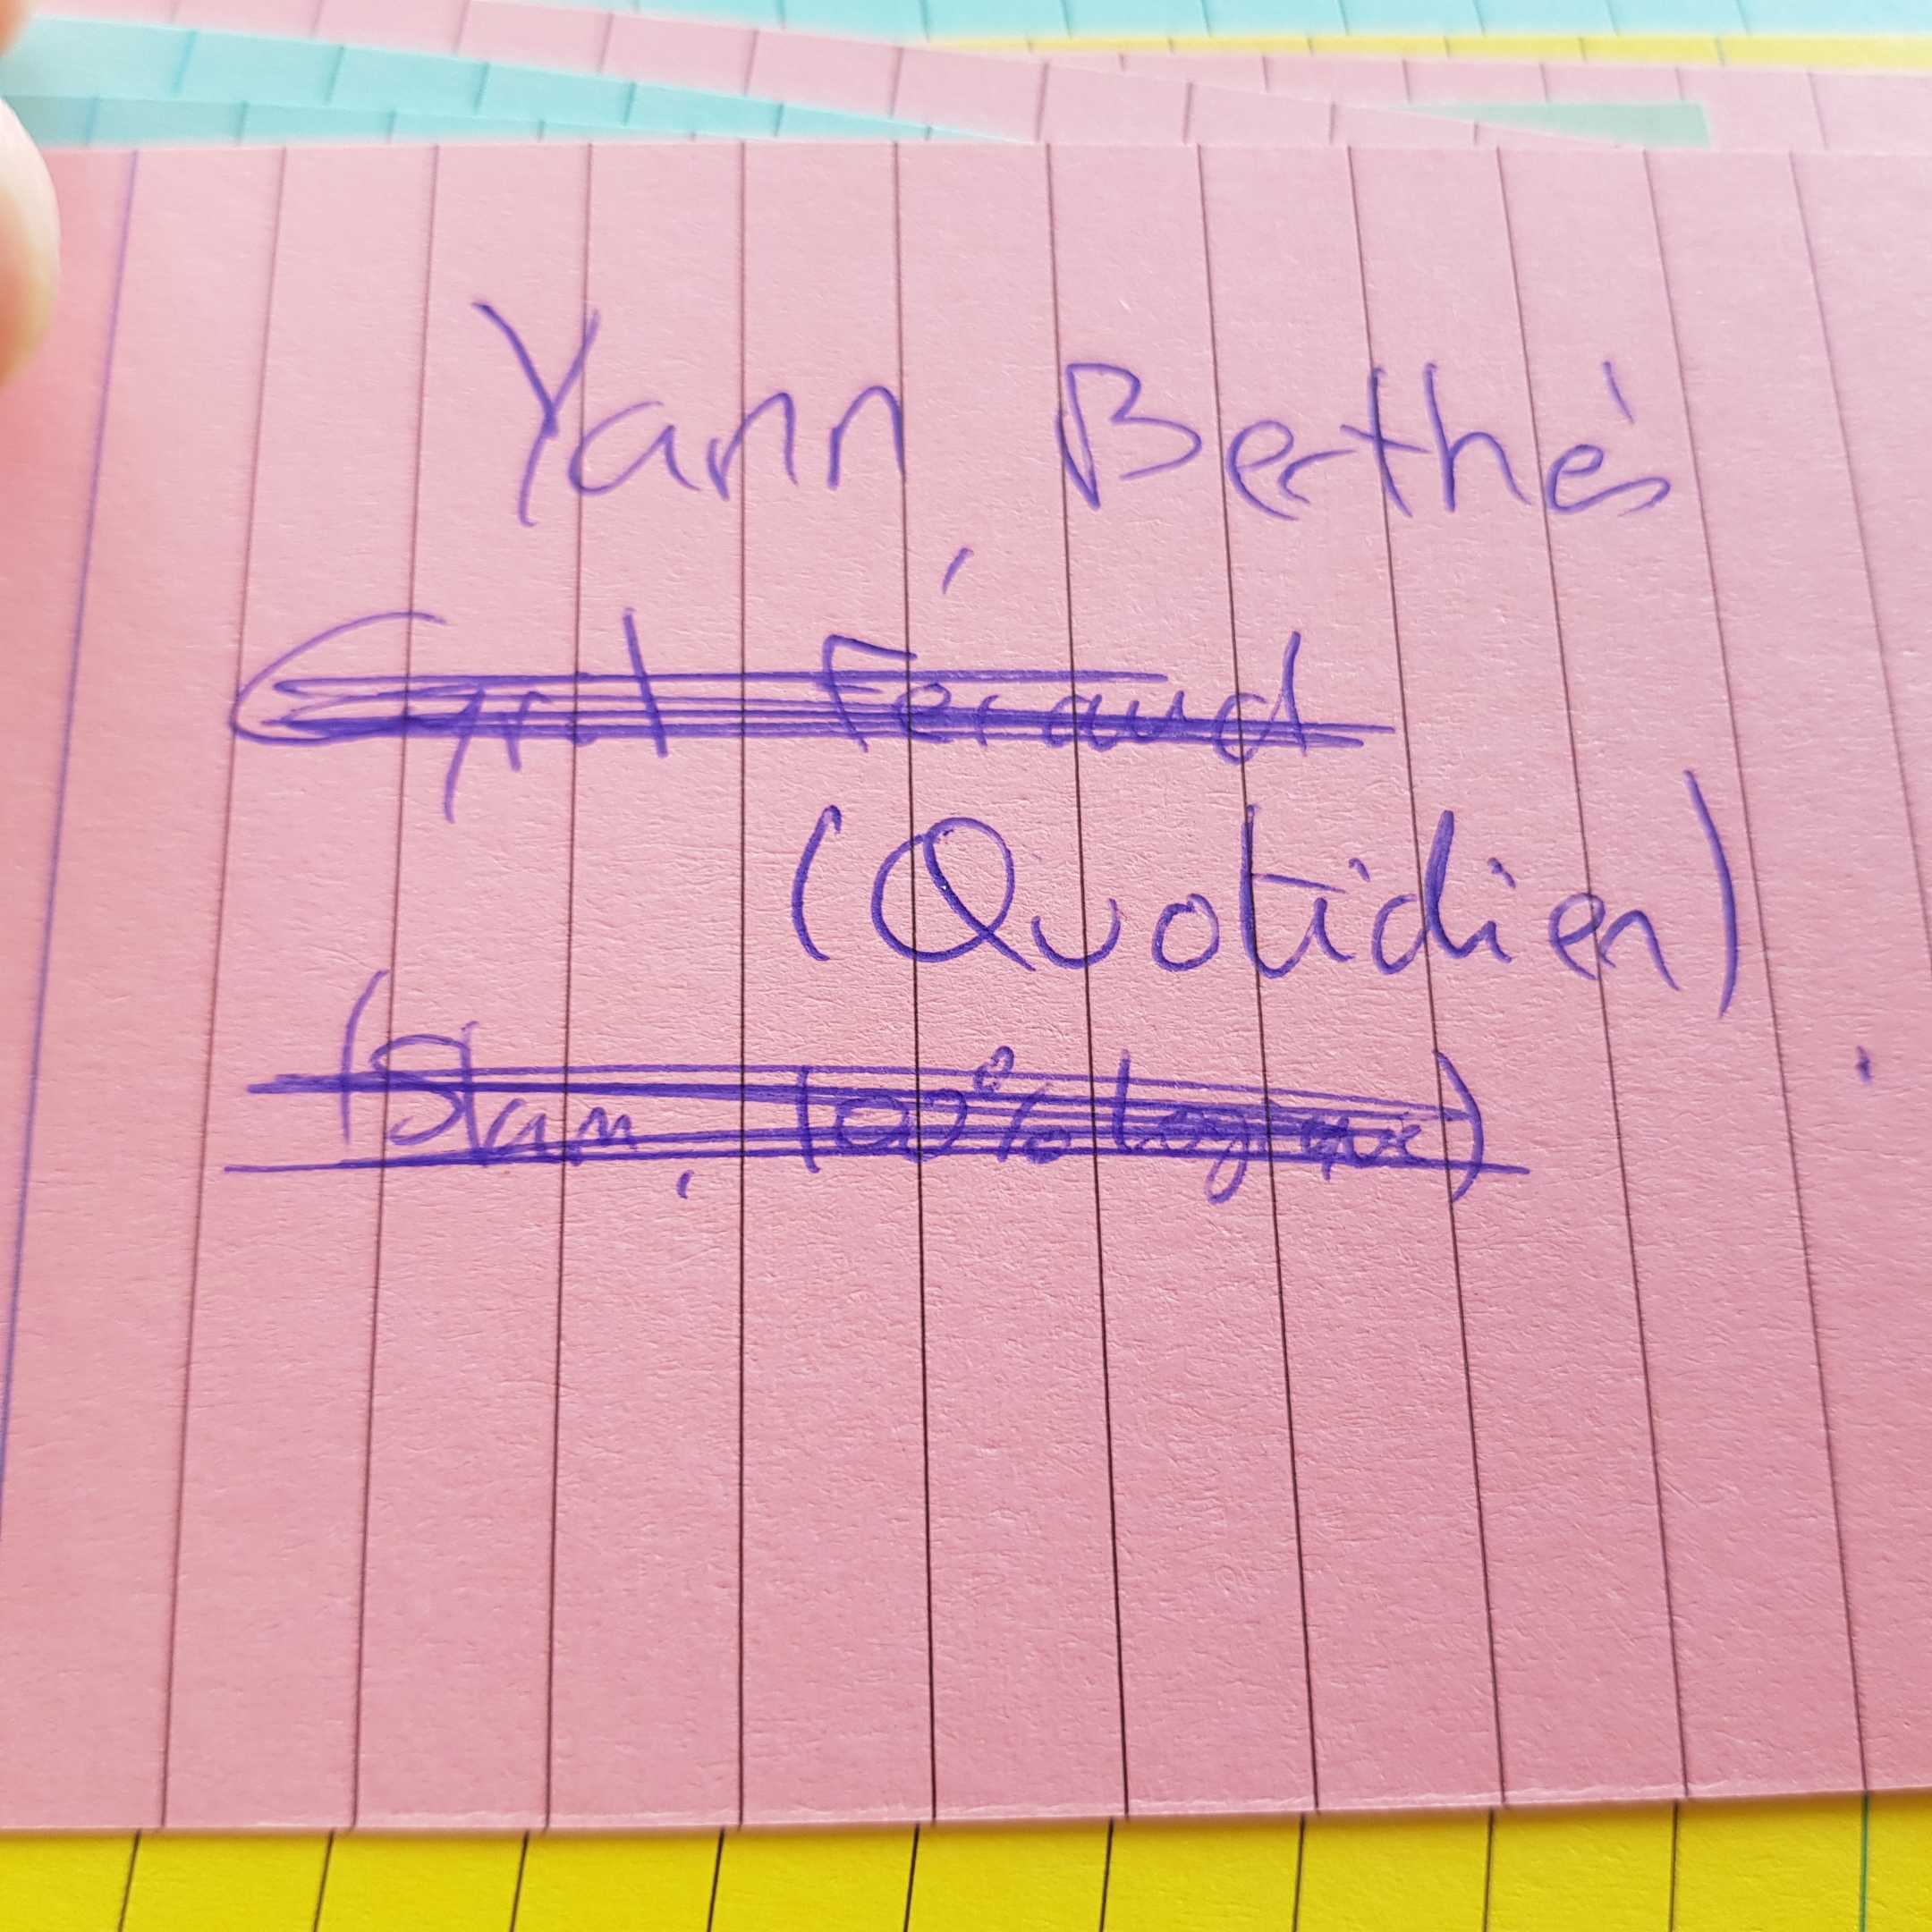 Yann Berthés
Cyril Féraud
(Quotidien)
(Slam, 100% logique)